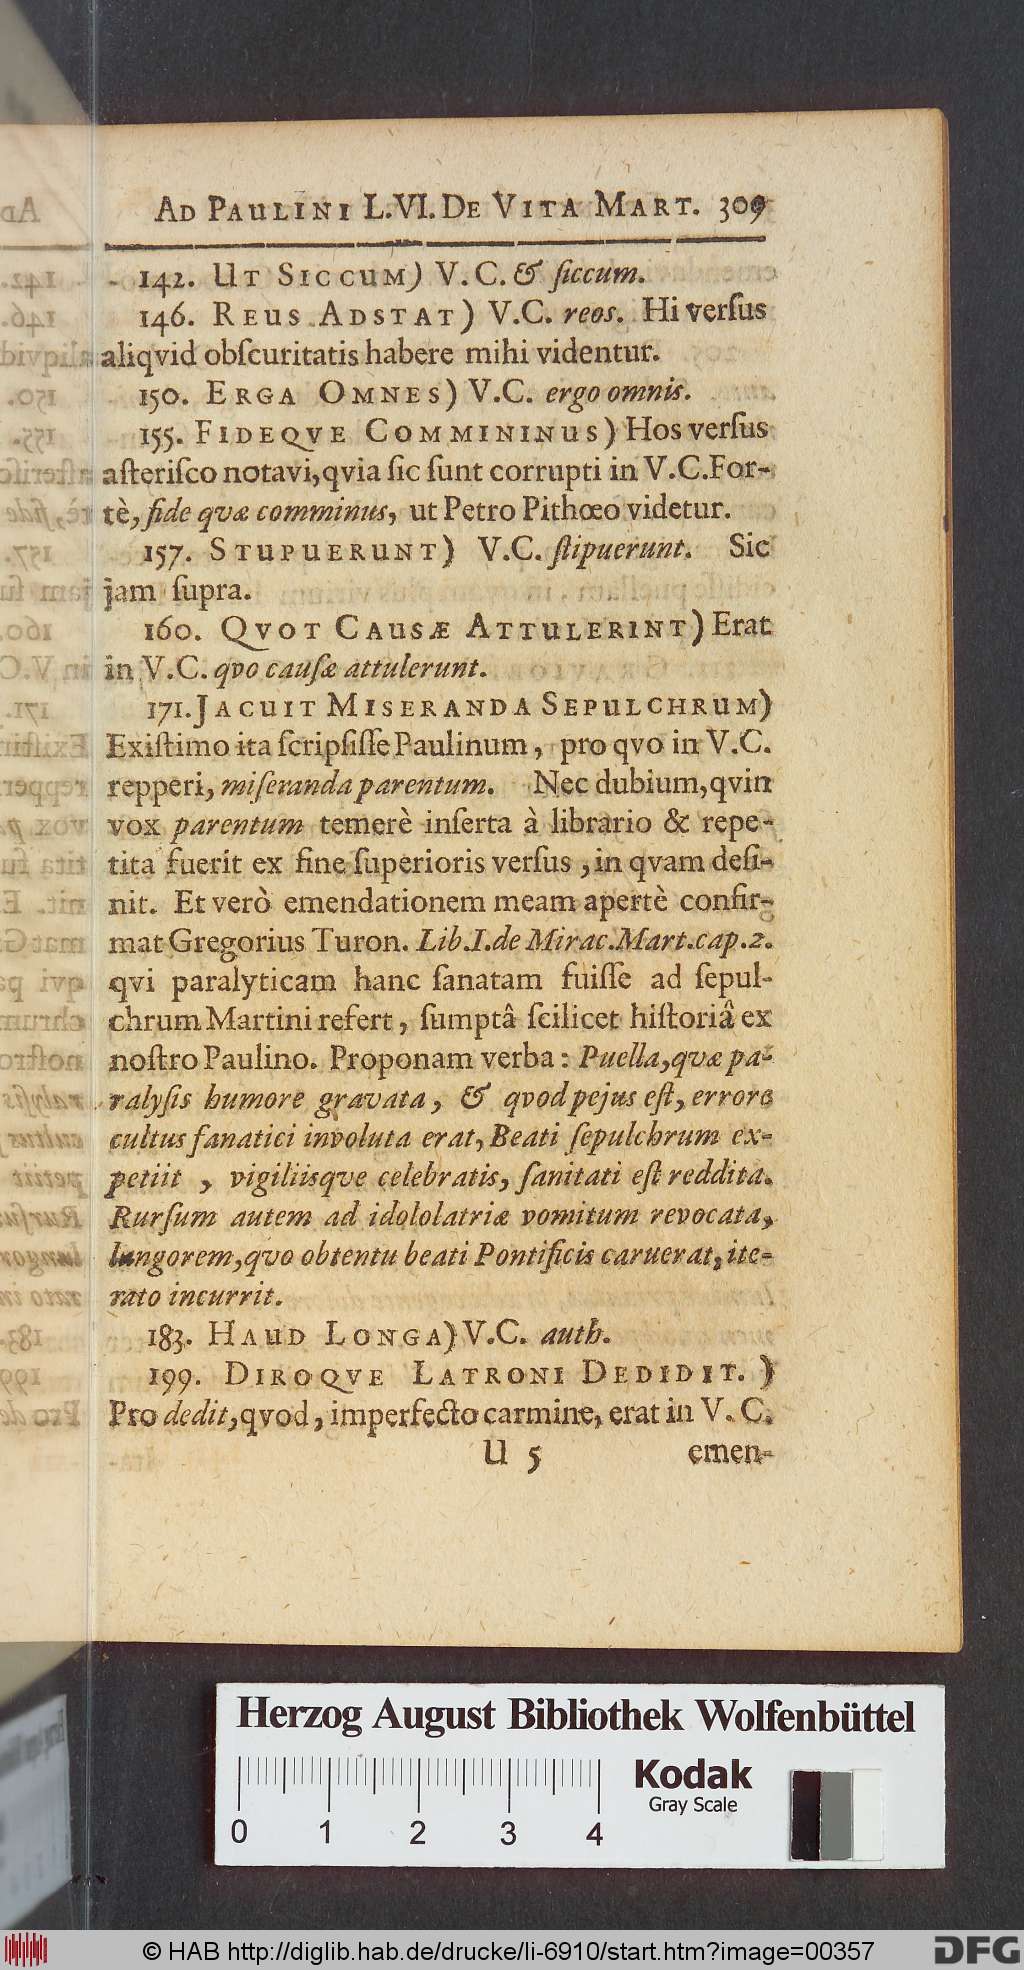 AD PAULINI L.VI. DE VITA MART. 309
142. UT SICCUM) V.C. & ſiccum.
146. REUS ADSTAT) V.C. reos. Hi verſus
aliqvid obſcuritatis habere mihi videntur.
150. ERGA OMNES) V.C. ergo omnis.
155. FIDEQVE COMMININUS) Hos verſus
aſteriſco notavi, qvia ſic ſunt corrupti in V.C. For-
tè, fide qvæ comminus, ut Petro Pithœo videtur.
157. STUPUERUNT) V.C. ſtipuerunt. Sic
jam ſupra.
160. QVOT CAUSÆ ATTULERINT) Erat
in V.C. qvo cauſæ attulerunt.
171. JACUIT MISERANDA SEPULCHRUM)
Exiſtimo ita ſcripſiſſe Paulinum, pro qvo in V.C.
repperi, miſeranda parentum. Nec dubium, qvin
vox parentum temerè inſerta à librario & repe-
tita fuerit ex fine ſuperioris verſus, in qvam deſi-
nit. Et verò emendationem meam apertè confir-
mat Gregorius Turon. Lib.I. de Mirac. Mart. cap. 2.
qvi paralyticam hanc ſanatam fuiſſe ad ſepul-
chrum Martini refert, ſumptâ ſcilicet hiſtoriâ ex
noſtro Paulino. Proponam verba: Puella, qvæ pa-
ralyſis humore gravata, & qvod pejus eſt, errore
cultus fanatici involuta erat, Beati ſepulchrum ex-
petiit, vigiliisqve celebratis, ſanitati eſt reddita.
Rurſum autem ad idololatriæ vomitum revocata,
langorem, qvo obtentu beati Pontificis caruerat, ite-
rato incurrit.
183. HAUD LONGA) V.C. auth.
199. DIROQVE LATRONI DEDIDIT.)
Pro dedit, qvod, imperfecto carmine, erat in V.C.
U 5 emen-
Herzog August Bibliothek Wolfenbüttel
Kodak
Gray Scale
0 1 2 3 4
© HAB http://diglib.hab.de/drucke/li-6910/start.htm?image=00357
DFG